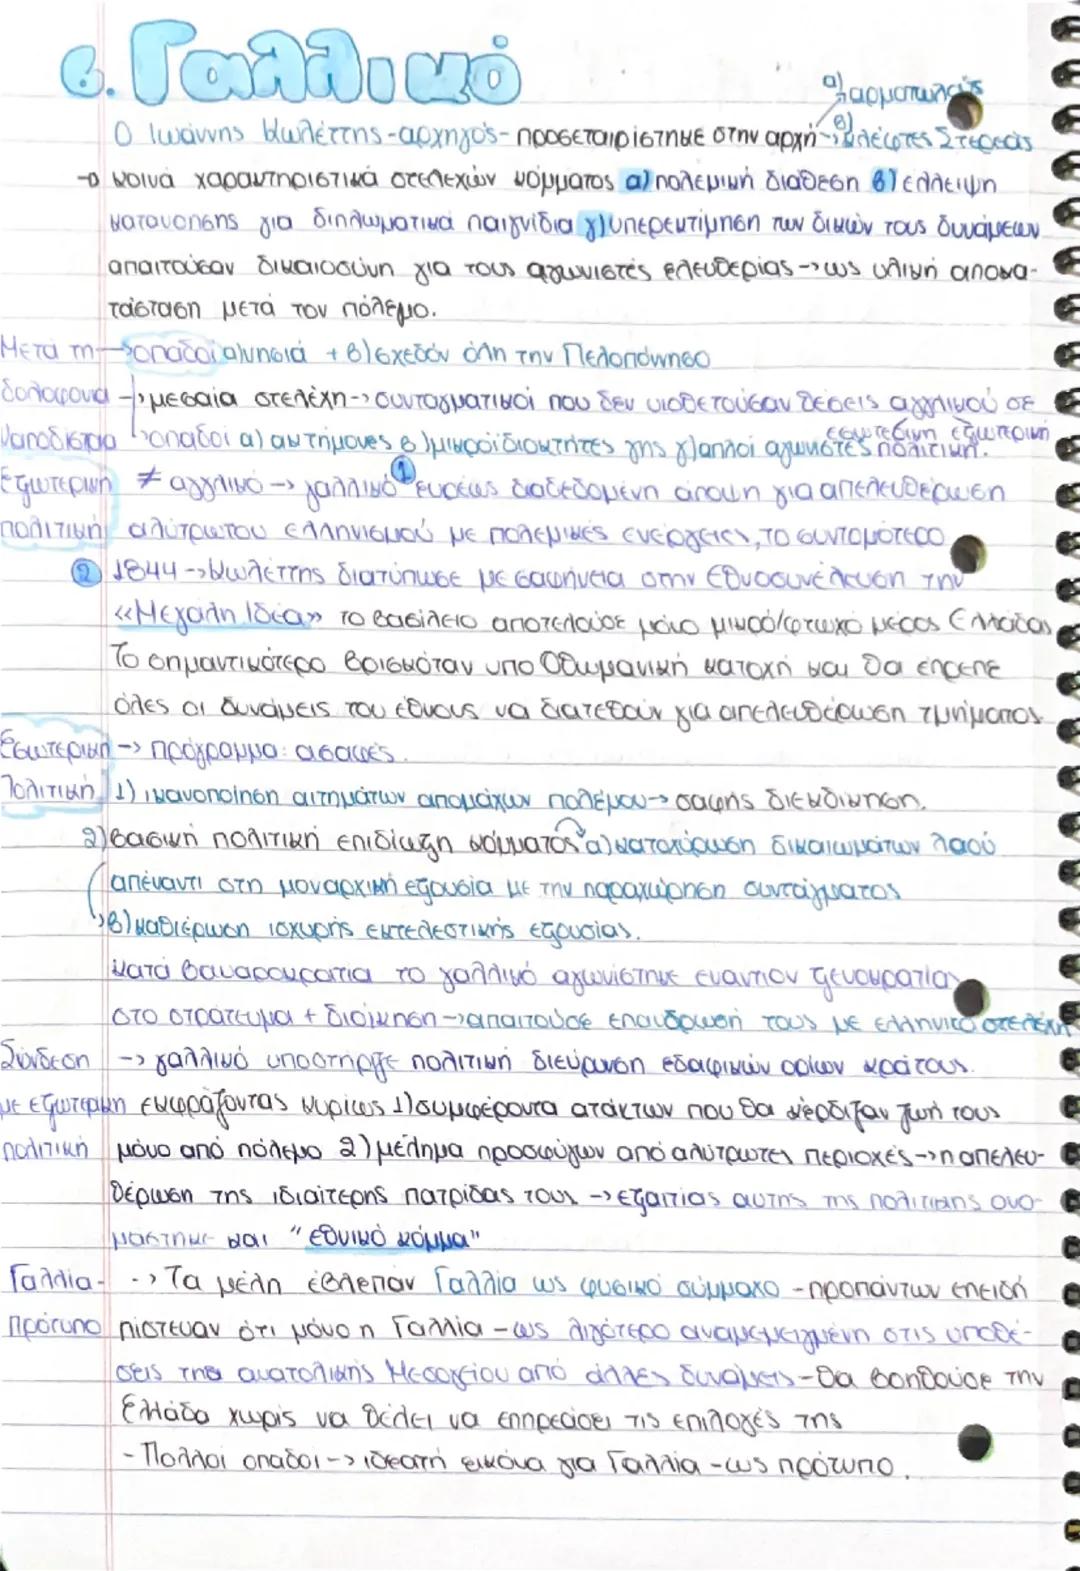 β. Γαλλικό
α) αρματωλούς
Ο Ιωάννης Κωλέττης-αρχηγός- προσεταιρίστηκε στην αρχή → β) κλέφτες Στερεάς
→ κοινά χαρακτηριστικά στελεχών κόμματος α) πολεμική διάθεση β) έλλειψη
κατανόησης για διπλωματικά παιγνίδια γ) υπερεκτίμηση των δικών τους δυνάμεων
απαιτούσαν δικαιοσύνη για τους αγωνιστές ελευθερίας → ως υλική αποκα-
τάσταση μετά τον πόλεμο.
Μετά τη → οπαδοί α) νησιά + β) σχεδόν όλη την Πελοπόννησο
δολοφονία → μεσαία στελέχη → συνταγματικοί που δεν υιοθετούσαν θέσεις αγγλικού σε
εσωτερική εξωτερική
Καποδίστρια → οπαδοί α) ακτήμονες β) μικροϊδιοκτήτες γης γ) απλοί αγωνιστές πολιτική.
Εξωτερική ≠ αγγλικό → γαλλικό ① ευρέως διαδεδομένη άποψη για απελευθέρωση
πολιτική αλύτρωτου ελληνισμού με πολεμικές ενέργειες, το συντομότερο
② 1844 → Κωλέττης διατύπωσε με σαφήνεια στην Εθνοσυνέλευση την
«Μεγάλη Ιδέα» το βασίλειο αποτελούσε μόνο μικρό/φτωχο μέρος Ελλάδας
Το σημαντικότερο βρισκόταν υπό Οθωμανική κατοχή και θα έπρεπε
όλες οι δυνάμεις του έθνους να διατεθούν για απελευθέρωση τμήματος
Εσωτερική → πρόγραμμα: ασαφές.
Πολιτική 1) ικανοποίηση αιτημάτων απομάχων πολέμου → σαφής διεκδίκηση.
2) βασική πολιτική επιδίωξη κόμματος α) κατοχύρωση δικαιωμάτων λαού
απέναντι στη μοναρχική εξουσία με την παραχώρηση συντάγματος
β) καθιέρωση ισχυρής εκτελεστικής εξουσίας.
Κατά βαυαροκρατία το γαλλικό αγωνίστηκε εναντίον ξενοκρατίας
στο στράτευμα + διοίκηση → απαιτούσε επάνδρωσή τους με ελληνικά στελέχη
Σύνδεση → γαλλικό υποστήριξε πολιτική διεύρυνση εδαφικών ορίων κράτους
με εξωτερική εκφράζοντας κυρίως 1) συμφέροντα ατάκτων που θα κέρδιζαν ζωή τους
πολιτική μόνο από πόλεμο 2) μέλημα προσφύγων από αλύτρωτες περιοχές → η απελευ-
θέρωση της ιδιαίτερης πατρίδας τους → εξαιτίας αυτής της πολιτικής ονο-
μάστηκε και "εθνικό κόμμα"
Γαλλία- → Τα μέλη έβλεπαν Γαλλία ως φυσικό σύμμαχο - προπάντων επειδή
Πρότυπο πίστευαν ότι μόνο η Γαλλία - ως λιγότερο αναμεμειγμένη στις υποθέ-
σεις της ανατολικής Μεσογείου από άλλες δυνάμεις - θα βοηθούσε την
Ελλάδα χωρίς να θέλει να επηρεάσει τις επιλογές της
- Πολλοί οπαδοί → ιδεατή εικόνα για Γαλλία - ως πρότυπο.